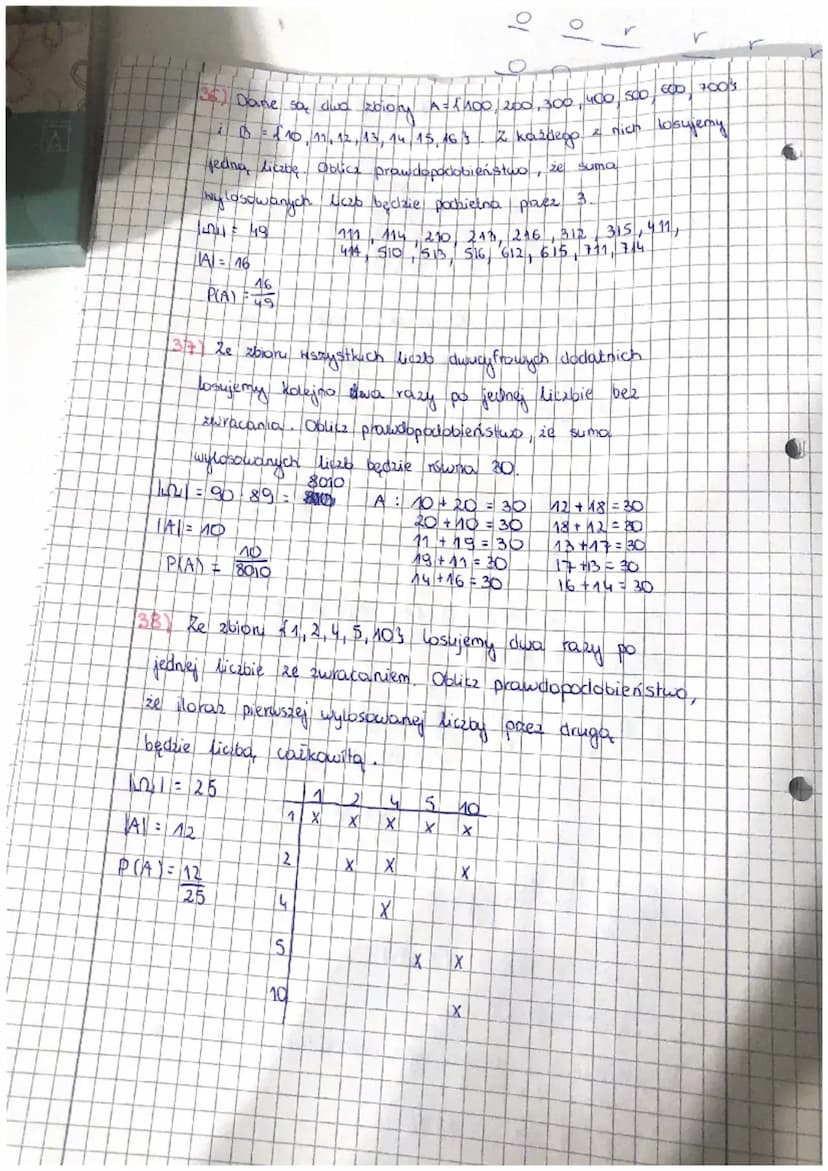 o o r r r r
o
36) Dane są dwa zbiory A={100, 200, 300, 400, 500, 600, 700}
i B = {10, 11, 12, 13, 14, 15, 16}. Z każdego z nich losujemy
jedną liczbę. Oblicz prawdopodobieństwo, że suma
wylosowanych liczb będzie podzielna przez 3.
|Ω| = 49
111, 114, 210, 213, 216, 312, 315, 411,
414, 510, 513, 516, 612, 615, 711, 714
|A| = 16
P(A) = 16/49
37) Ze zbioru wszystkich liczb dwucyfrowych dodatnich
losujemy kolejno dwa razy po jednej liczbie bez
zwracania. Oblicz prawdopodobieństwo, że suma
wylosowanych liczb będzie równa 30.
|Ω| = 90 · 89 = 8010
A : 10 + 20 = 30 12 + 18 = 30
20 + 10 = 30 18 + 12 = 30
|A| = 10
11 + 19 = 30 13 + 17 = 30
19 + 11 = 30 17 + 13 = 30
P(A) = 10/8010
14 + 16 = 30 16 + 14 = 30
38) Ze zbioru {1, 2, 4, 5, 10} losujemy dwa razy po
jednej liczbie ze zwracaniem. Oblicz prawdopodobieństwo,
że iloraz pierwszej wylosowanej liczby przez drugą
będzie liczbą całkowitą.
|Ω| = 25
|A| = 12
P(A) = 12/25
1 2 4 5 10
1 x x x x x
2 x x x
4 x
5 x x
10 x